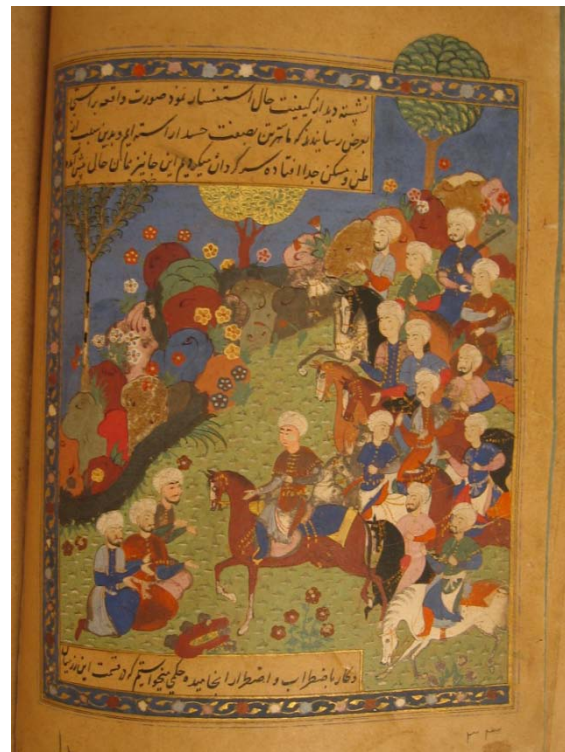 نشسته دید از کیفیت حال استفسار نمود صورت واقعه براستی
بعرض رسانیدند که ما سه تن بصفت حسد استوارایم و بدین سبب از
وطن و مسکن جدا افتاده سرگردان میکردیم این جا نیز همان حال پیش آمده
و کار باضطراب و اضطرار انجامیده حکمی میخواستیم که قسمت این زر میان